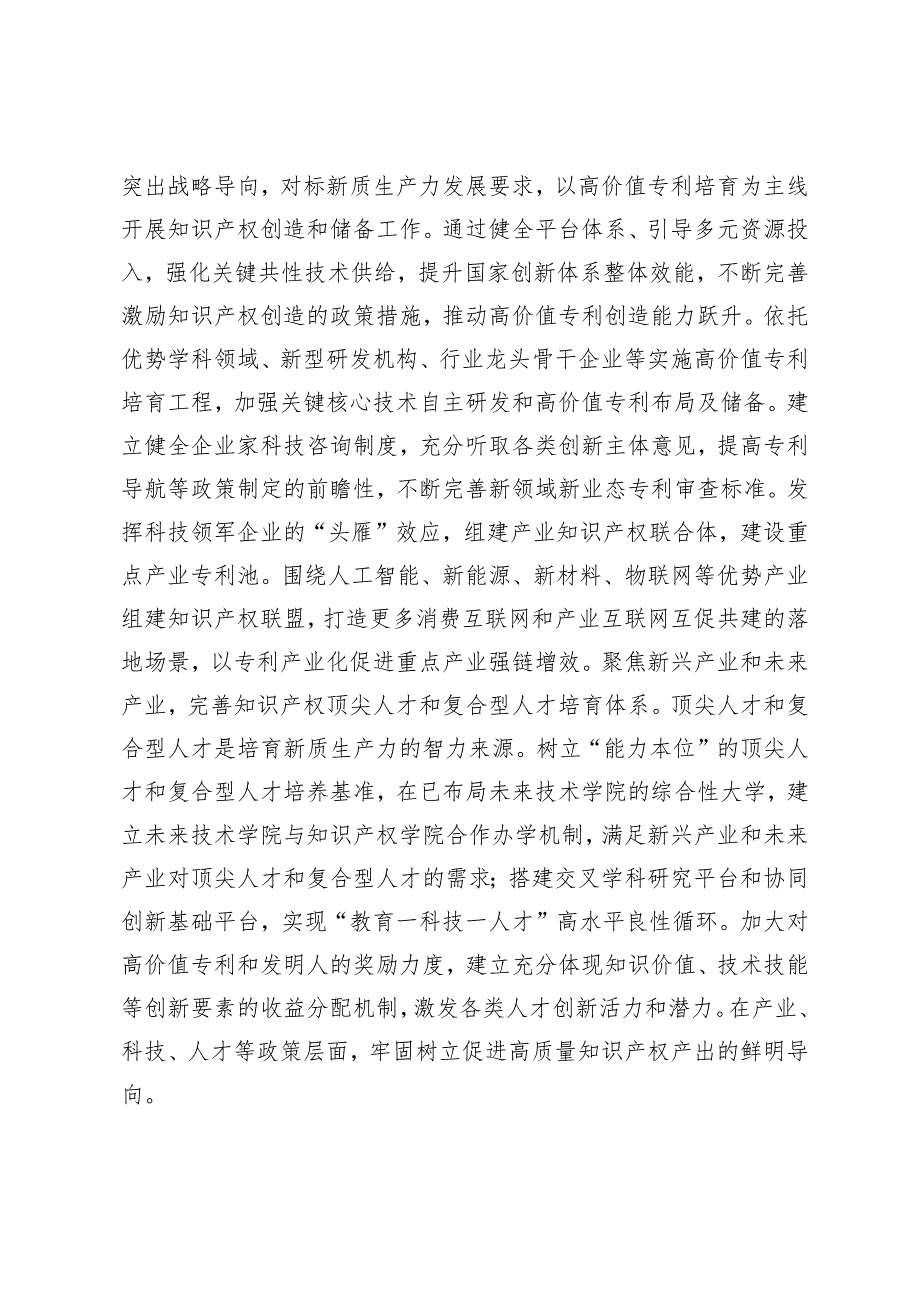 突出战略导向，对标新质生产力发展要求，以高价值专利培育为主线
开展知识产权创造和储备工作。通过健全平台体系、引导多元资源投
入，强化关键共性技术供给，提升国家创新体系整体效能，不断完善
激励知识产权创造的政策措施，推动高价值专利创造能力跃升。依托
优势学科领域、新型研发机构、行业龙头骨干企业等实施高价值专利
培育工程，加强关键核心技术自主研发和高价值专利布局及储备。建
立健全企业家科技咨询制度，充分听取各类创新主体意见，提高专利
导航等政策制定的前瞻性，不断完善新领域新业态专利审查标准。发
挥科技领军企业的“头雁”效应，组建产业知识产权联合体，建设重
点产业专利池。围绕人工智能、新能源、新材料、物联网等优势产业
组建知识产权联盟，打造更多消费互联网和产业互联网互促共建的落
地场景，以专利产业化促进重点产业强链增效。聚焦新兴产业和未来
产业，完善知识产权顶尖人才和复合型人才培育体系。顶尖人才和复
合型人才是培育新质生产力的智力来源。树立“能力本位”的顶尖人
才和复合型人才培养基准，在已布局未来技术学院的综合性大学，建
立未来技术学院与知识产权学院合作办学机制，满足新兴产业和未来
产业对顶尖人才和复合型人才的需求；搭建交叉学科研究平台和协同
创新基础平台，实现“教育一科技一人才”高水平良性循环。加大对
高价值专利和发明人的奖励力度，建立充分体现知识价值、技术技能
等创新要素的收益分配机制，激发各类人才创新活力和潜力。在产业、
科技、人才等政策层面，牢固树立促进高质量知识产权产出的鲜明导
向。